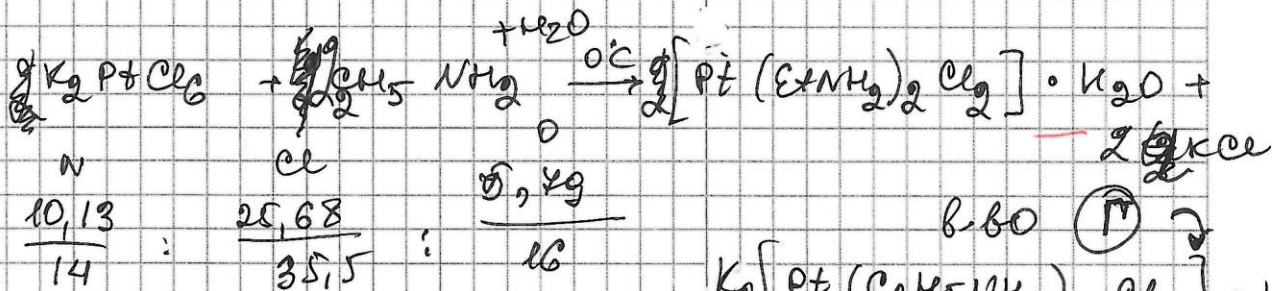 +H2O
K2PtCl6 + 2C2H5NH2 0°C → [Pt(EtNH2)2Cl2] · H2O +
2 KCl
N Cl O
10,13/14 : 25,68/35,5 : 5,79/16
в-во Г
K2[Pt(C2H5NH